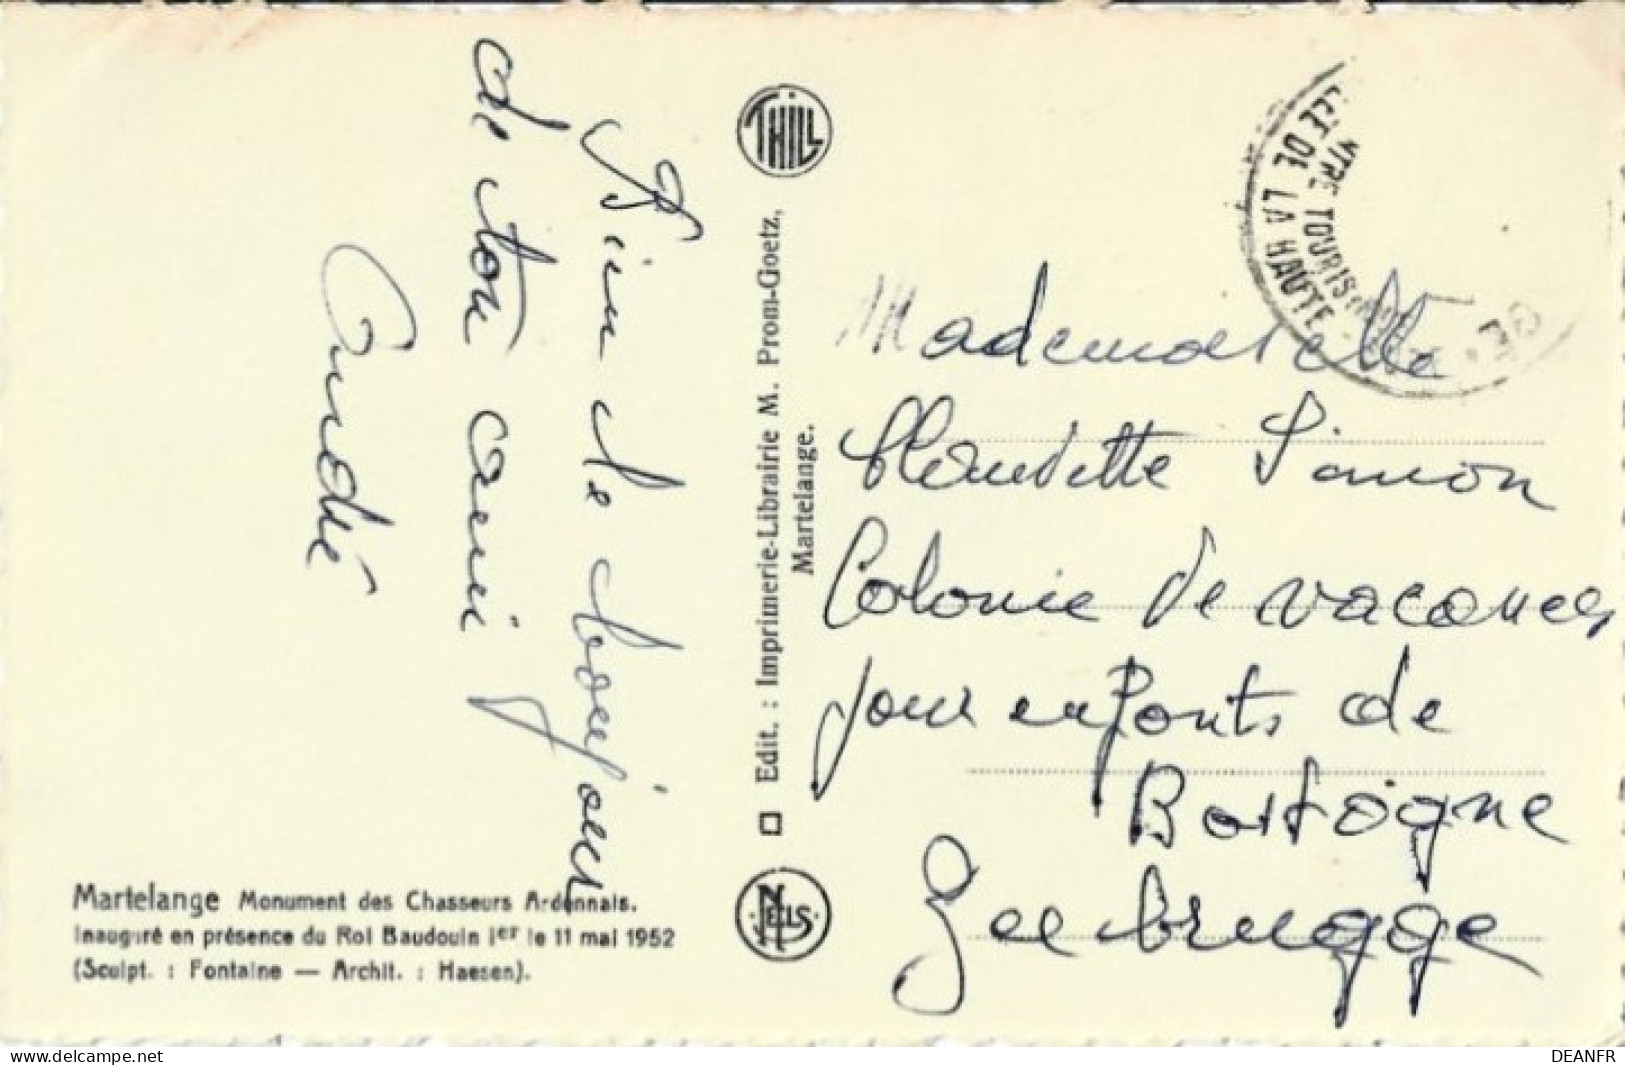 Bien le bonjour
de ton ami
André
THILL
Edit. : Imprimerie-Librairie M. Prom-Goetz,
Martelange.
NELS
Martelange Monument des Chasseurs Ardennais.
Inauguré en présence du Roi Baudouin Ier le 11 mai 1952
(Sculpt. : Fontaine — Archit. : Haesen).
NTRE TOURIS
ÉE DE LA HAUTE
Mademoiselle
Claudette Simon
Colonie de vacances
pour enfants de
Bastogne
Zeebrugge
www.delcampe.net
DEANFR